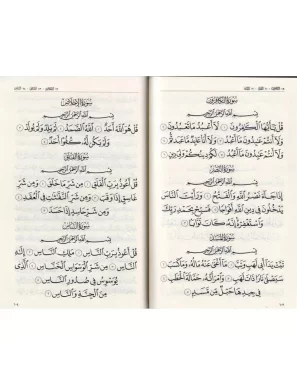 سورة الكافرون
بسم الله الرحمن الرحيم
قل يأيها الكفرون ١ لا أعبد ما تعبدون
٢ ولا أنتم عبدون ما أعبد ٣ ولا أنا عابد ما عبدتم
٤ ولا أنتم عبدون ما أعبد ٥ لكم دينكم ولي دين ٦
سورة النصر
بسم الله الرحمن الرحيم
إذا جاء نصر الله والفتح ١ ورأيت الناس
يدخلون في دين الله أفواجا ٢ فسبح بحمد ربك
واستغفره إنه كان توابا ٣
سورة المسد
بسم الله الرحمن الرحيم
تبت يدا أبي لهب وتب ١ ما أغنى عنه ماله وما كسب ٢
سيصلى نارا ذات لهب ٣ وامرأته حمالة الحطب ٤
في جيدها حبل من مسد ٥
سورة الإخلاص
بسم الله الرحمن الرحيم
قل هو الله أحد ١ الله الصمد ٢ لم يلد ولم يولد
٣ ولم يكن له كفوا أحد ٤
سورة الفلق
بسم الله الرحمن الرحيم
قل أعوذ برب الفلق ١ من شر ما خلق ٢ ومن شر
غاسق إذا وقب ٣ ومن شر النفثت في العقد
٤ ومن شر حاسد إذا حسد ٥
سورة الناس
بسم الله الرحمن الرحيم
قل أعوذ برب الناس ١ ملك الناس ٢
إله الناس ٣ من شر الوسواس الخناس ٤ الذي
يوسوس في صدور الناس ٥
من الجنة والناس ٦